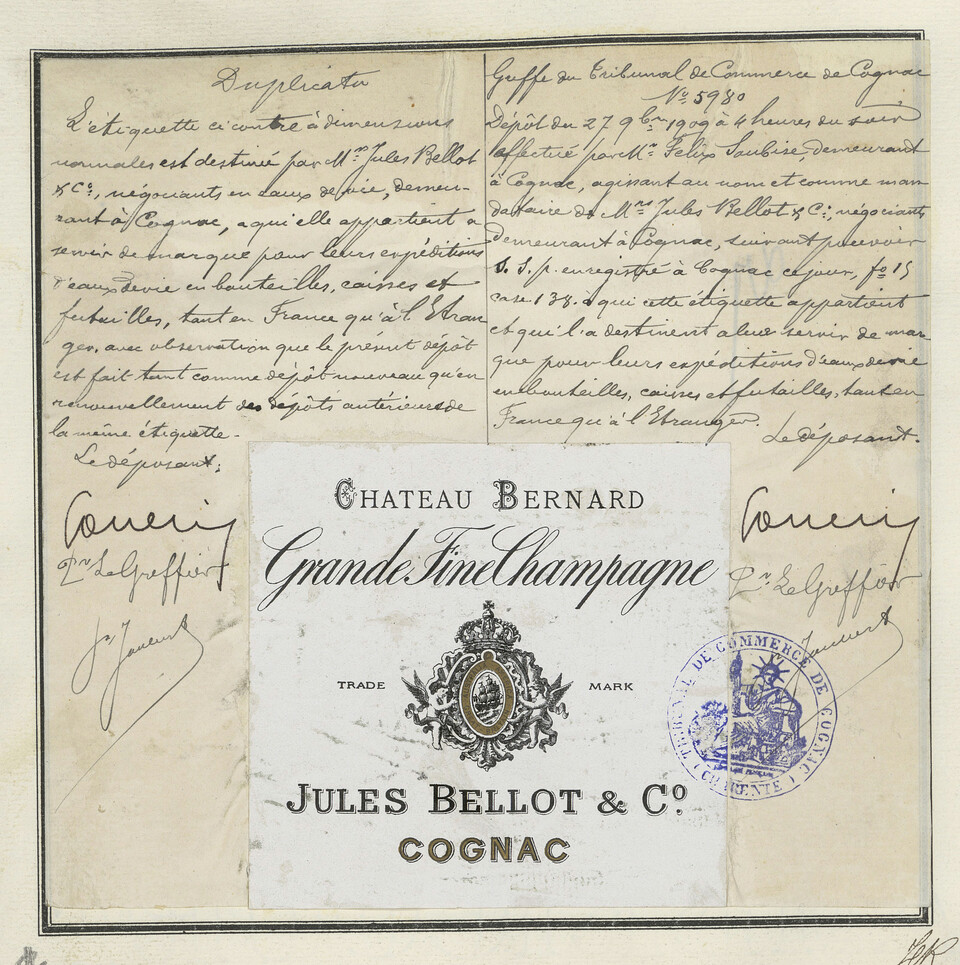 Duplicata
L'étiquette ci contre à dimensions
normales est destinée par Mrs Jules Bellot
& Co, négociants en eaux de vie, demeu-
rant à Cognac, a qui elle appartient a
servir de marque pour leurs expéditions
d'eaux de vie en bouteilles, caisses et
futailles, tant en France qu'à l'Etran
ger, avec observation que le présent dépôt
est fait tant comme dépôt nouveau qu'en
renouvellement des dépôts antérieurs de
la même étiquette.
Le déposant;
Pr Le Greffier
Greffe du Tribunal de Commerce de Cognac
No 5980
Dépôt du 27 9bre 1909 à 4 heures du soir
effectué par Mr Felix Soubise, demeurant
à Cognac, agissant au nom et comme man
dataire de Mrs Jules Bellot & Co, négociants
demeurant à Cognac, suivant pouvoir
S. S. p. enregistré à Cognac ce jour, fo 15
case 138. à qui cette étiquette appartient
et qui l'a destinent a leur servir de mar
que pour leurs expéditions d'eaux de vie
en bouteilles, caisses et futailles, tant en
France qu'à l'Etranger.
Le déposant.
Pr Le Greffier
CHATEAU BERNARD
Grande Fine Champagne
TRADE MARK
JULES BELLOT & Co
COGNAC
TRIBUNAL DE COMMERCE DE COGNAC
(CHARENTE)